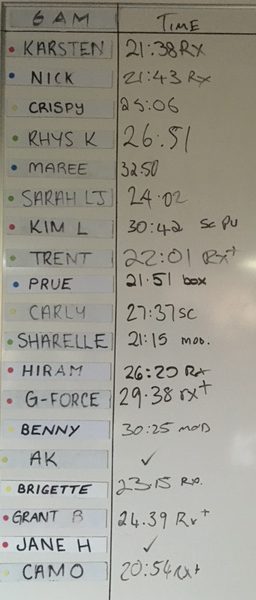 6 AM TIME
KARSTEN 21:38 Rx
NICK 21:43 Rx
CRISPY 25:06
RHYS K 26:51
MAREE 32:50
SARAH LJ 24:02
KIM L 30:42 SC PU
TRENT 22:01 Rx+
PRUE 21:51 box
CARLY 27:37 SC
SHARELLE 21:15 MOD.
HIRAM 26:20 Rx
G-FORCE 29.38 rx+
BENNY 30:25 MOD
AK ✓
BRIGETTE 23:15 Rx.
GRANT B 24.39 Rx+
JANE H ✓
CAMO 20:54 Rx+